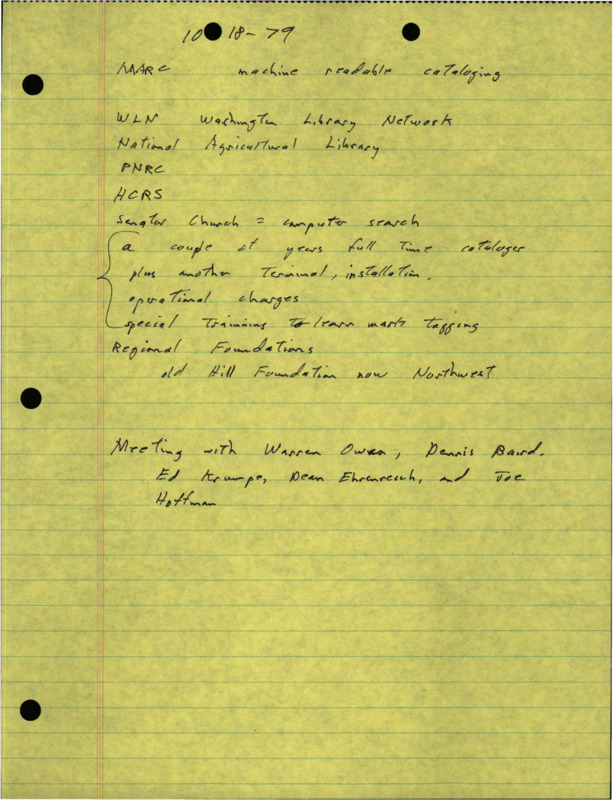 10-18-79
MARC machine readable cataloging
WLN Washington Library Network
National Agricultural Library
PNRC
HCRS
Senator Church = computer search
a couple of years full time cataloger
plus another terminal, installation,
operational charges
special training to learn mark tagging
Regional Foundations
old Hill Foundation now Northwest
Meeting with Warren Owen, Dennis Baird,
Ed Krumpe, Dean Ehrenreich, and Joe
Hoffman